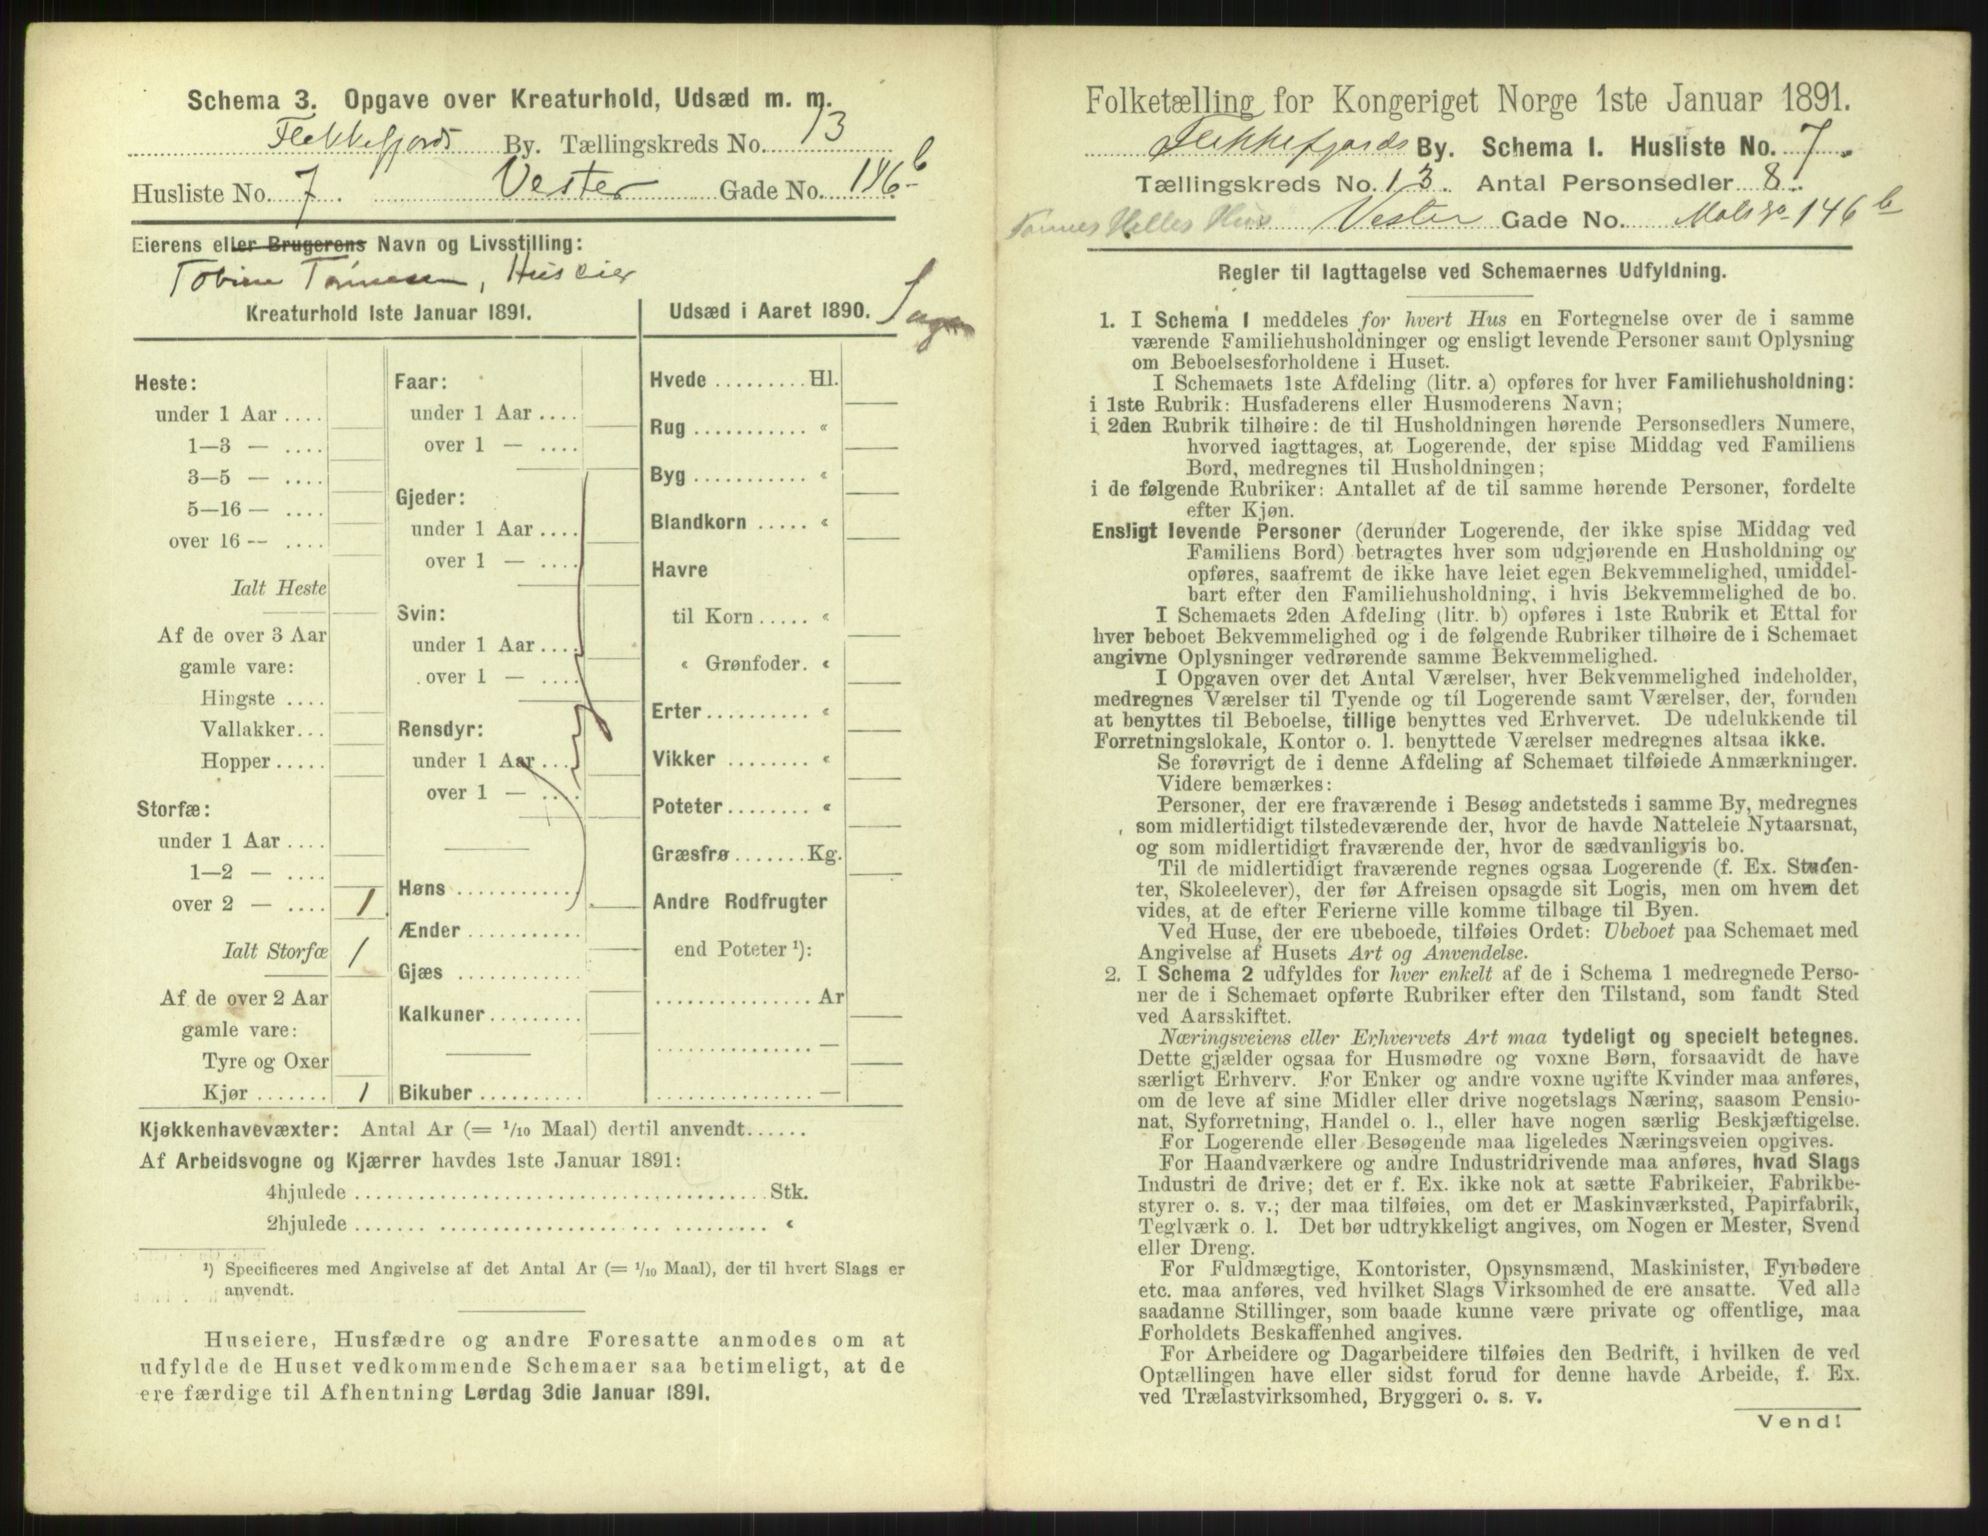 Schema 3. Opgave over Kreaturhold, Udsæd m. m.
Flekkefjords By. Tællingskreds No. 13
Husliste No. 7. Vester Gade No. 146 b
Eierens eller Brugerens Navn og Livsstilling:
Tobine Tønnesen, Huseier
Kreaturhold 1ste Januar 1891.
Heste:
under 1 Aar ....
1—3 — ....
3—5 — ....
5—16 — ....
over 16 — ....
Ialt Heste
Af de over 3 Aar
gamle vare:
Hingste ....
Vallakker...
Hopper .....
Storfæ:
under 1 Aar ....
1—2 — ....
over 2 — .... 1
Ialt Storfæ 1
Af de over 2 Aar
gamle vare:
Tyre og Oxer
Kjør ....... 1
Faar:
under 1 Aar ....
over 1 — ....
Gjeder:
under 1 Aar ....
over 1 — ....
Svin:
under 1 Aar ....
over 1 — ....
Rensdyr:
under 1 Aar ....
over 1 — ....
Høns ...........
Ænder ...........
Gjæs ...........
Kalkuner.........
Bikuber ..........
Udsæd i Aaret 1890.
Hvede ......... Hl.
Rug ........... «
Byg ........... «
Blandkorn ..... «
Havre
til Korn ..... «
« Grønfoder. «
Erter.......... «
Vikker ........ «
Poteter ........ «
Græsfrø ....... Kg.
Andre Rodfrugter
end Poteter ¹):
............... Ar
............... —
............... —
Kjøkkenhavevæxter: Antal Ar (= 1/10 Maal) dertil anvendt......
Af Arbeidsvogne og Kjærrer havdes 1ste Januar 1891:
4hjulede ........................................ Stk.
2hjulede ........................................ «
¹) Specificeres med Angivelse af det Antal Ar (= 1/10 Maal), der til hvert Slags er
anvendt.
Huseiere, Husfædre og andre Foresatte anmodes om at
udfylde de Huset vedkommende Schemaer saa betimeligt, at de
ere færdige til Afhentning Lørdag 3die Januar 1891.
Folketælling for Kongeriget Norge 1ste Januar 1891.
Flekkefjords By. Schema 1. Husliste No. 7.
Tællingskreds No. 13. Antal Personsedler 8.
Tønnes Helles Hus Vester Gade No. 146 b
Regler til Iagttagelse ved Schemaernes Udfyldning.
1. I Schema 1 meddeles for hvert Hus en Fortegnelse over de i samme
værende Familiehusholdninger og ensligt levende Personer samt Oplysning
om Beboelsesforholdene i Huset.
I Schemaets 1ste Afdeling (litr. a) opføres for hver Familiehusholdning:
i 1ste Rubrik: Husfaderens eller Husmoderens Navn;
i 2den Rubrik tilhøire: de til Husholdningen hørende Personsedlers Numere,
hvorved iagttages, at Logerende, der spise Middag ved Familiens
Bord, medregnes til Husholdningen;
i de følgende Rubriker: Antallet af de til samme hørende Personer, fordelte
efter Kjøn.
Ensligt levende Personer (derunder Logerende, der ikke spise Middag ved
Familiens Bord) betragtes hver som udgjørende en Husholdning og
opføres, saafremt de ikke have leiet egen Bekvemmelighed, umiddel-
bart efter den Familiehusholdning, i hvis Bekvemmelighed de bo.
I Schemaets 2den Afdeling (litr. b) opføres i 1ste Rubrik et Ettal for
hver beboet Bekvemmelighed og i de følgende Rubriker tilhøire de i Schemaet
angivne Oplysninger vedrørende samme Bekvemmelighed.
I Opgaven over det Antal Værelser, hver Bekvemmelighed indeholder,
medregnes Værelser til Tyende og til Logerende samt Værelser, der, foruden
at benyttes til Beboelse, tillige benyttes ved Erhvervet. De udelukkende til
Forretningslokale, Kontor o. l. benyttede Værelser medregnes altsaa ikke.
Se forøvrigt de i denne Afdeling af Schemaet tilføiede Anmærkninger.
Videre bemærkes:
Personer, der ere fraværende i Besøg andetsteds i samme By, medregnes
som midlertidigt tilstedeværende der, hvor de havde Natteleie Nytaarsnat,
og som midlertidigt fraværende der, hvor de sædvanligvis bo.
Til de midlertidigt fraværende regnes ogsaa Logerende (f. Ex. Studen-
ter, Skoleelever), der før Afreisen opsagde sit Logis, men om hvem det
vides, at de efter Ferierne ville komme tilbage til Byen.
Ved Huse, der ere ubeboede, tilføies Ordet: Ubeboet paa Schemaet med
Angivelse af Husets Art og Anvendelse.
2. I Schema 2 udfyldes for hver enkelt af de i Schema 1 medregnede Perso-
ner de i Schemaet opførte Rubriker efter den Tilstand, som fandt Sted
ved Aarsskiftet.
Næringsveiens eller Erhvervets Art maa tydeligt og specielt betegnes.
Dette gjælder ogsaa for Husmødre og voxne Børn, forsaavidt de have
særligt Erhverv. For Enker og andre voxne ugifte Kvinder maa anføres,
om de leve af sine Midler eller drive nogetslags Næring, saasom Pensio-
nat, Syforretning, Handel o. l., eller have nogen særlig Beskjæftigelse.
For Logerende eller Besøgende maa ligeledes Næringsveien opgives.
For Haandværkere og andre Industridrivende maa anføres, hvad Slags
Industri de drive; det er f. Ex. ikke nok at sætte Fabrikeier, Fabrikbe-
styrer o. s. v.; der maa tilføies, om det er Maskinværksted, Papirfabrik,
Teglværk o. l. Det bør udtrykkeligt angives, om Nogen er Mester, Svend
eller Dreng.
For Fuldmægtige, Kontorister, Opsynsmænd, Maskinister, Fyrbødere
etc. maa anføres, ved hvilket Slags Virksomhed de ere ansatte. Ved alle
saadanne Stillinger, som baade kunne være private og offentlige, maa
Forholdets Beskaffenhed angives.
For Arbeidere og Dagarbeidere tilføies den Bedrift, i hvilken de ved
Optællingen have eller sidst forud for denne havde Arbeide, f. Ex.
ved Trælastvirksomhed, Bryggeri o. s. v.
Vend!